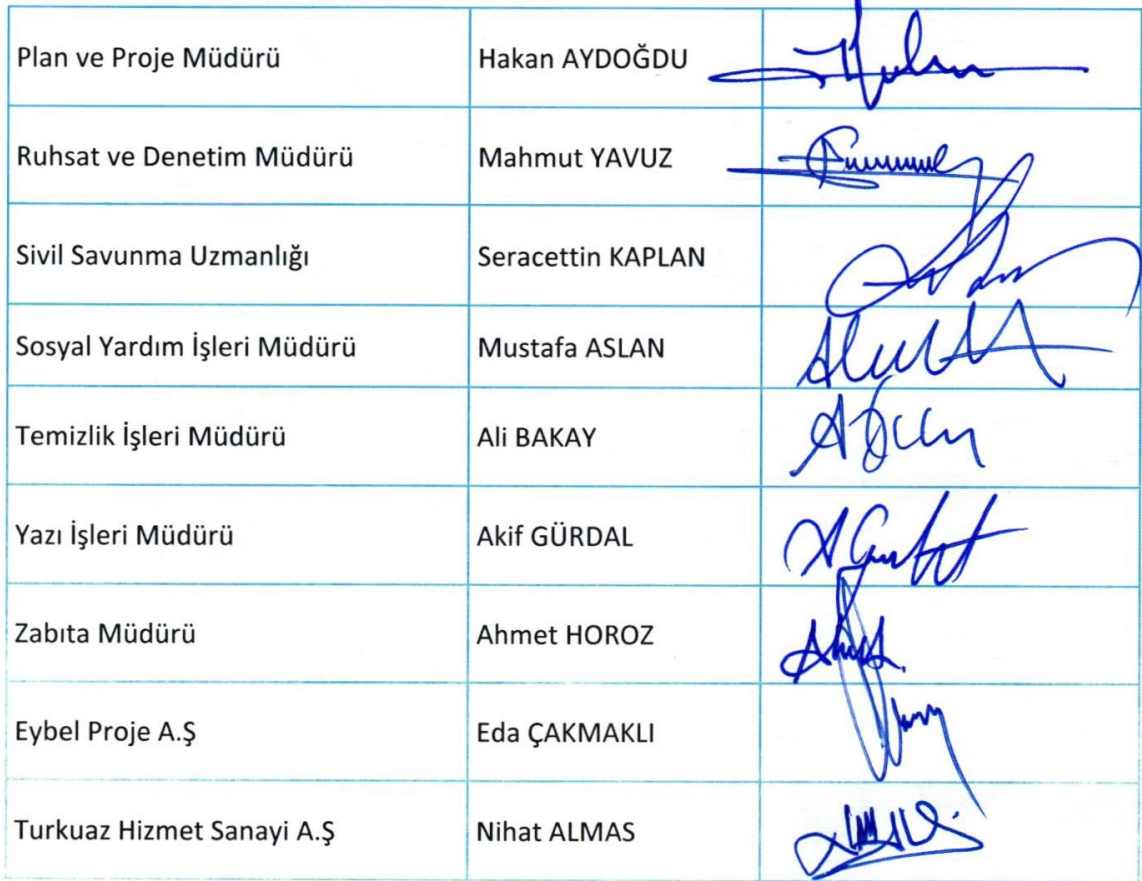 Plan ve Proje Müdürü Hakan AYDOĞDU
Ruhsat ve Denetim Müdürü Mahmut YAVUZ
Sivil Savunma Uzmanlığı Seracettin KAPLAN
Sosyal Yardım İşleri Müdürü Mustafa ASLAN
Temizlik İşleri Müdürü Ali BAKAY
Yazı İşleri Müdürü Akif GÜRDAL
Zabıta Müdürü Ahmet HOROZ
Eybel Proje A.Ş Eda ÇAKMAKLI
Turkuaz Hizmet Sanayi A.Ş Nihat ALMAS